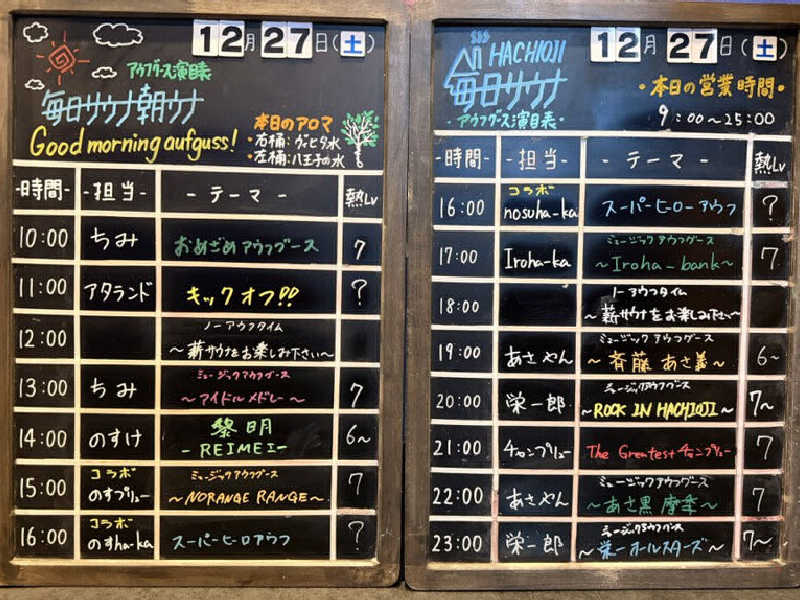 12月27日(土)
アウフグース演目表
毎日サウナ朝ウナ
Good morning aufguss!
本日のアロマ
・右桶:ヴィヒタ水
・左桶:八王子の水
-時間- -担当- -テーマ- 熱Lv
10:00 ちみ おめざめアウフグース 7
11:00 アタランド キックオフ!! ?
12:00 ノーアウフタイム
~薪サウナをお楽しみ下さい~
13:00 ちみ ミュージックアウフグース
~アイドルメドレー~ 7
14:00 のすけ 黎明
-REIMEI- 6~
15:00 コラボ
のすプリュー ミュージックアウフグース
~NORANGE RANGE~ 7
16:00 コラボ
のすha-ka スーパーヒーロアウフ ?
12月27日(土)
HACHIOJI
毎日サウナ
-アウフグース演目表-
・本日の営業時間・
9:00~25:00
-時間- -担当- -テーマ- 熱Lv
16:00 コラボ
nosuha-ka スーパーヒーローアウフ ?
17:00 Iroha-ka ミュージックアウフグース
~Iroha-bank~ 7
18:00 ノーアウフタイム
~薪サウナをお楽しみ下さい~
19:00 あさやん ミュージックアウフグース
~斉藤あさ義~ 6~
20:00 栄一郎 ミュージックアウフグース
~ROCK IN HACHIOJI~ 7~
21:00 チャンプリュー The Greatestチャンプリュー 7
22:00 あさやん ミュージックアウフグース
~あさ黒摩季~ 7
23:00 栄一郎 ミュージックアウフグース
~栄一オールスターズ~ 7~